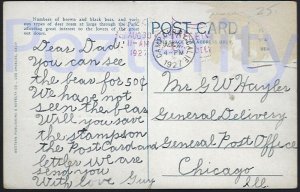 Numbers of brown and black bear, and various types of deer roam at large through the Park, affording great interest to the lovers of the great out doors.
POST CARD
11-AM
1927
4-PM
1927
Dear Dad:
You can see
the bear for 50¢
We have not
seen the bear
Will you save
the stamps on
the Postcard and
letters we are
send you
With love Guy
Mr G W Hayler
General Delivery
General Post Office
Chicago
Ill.